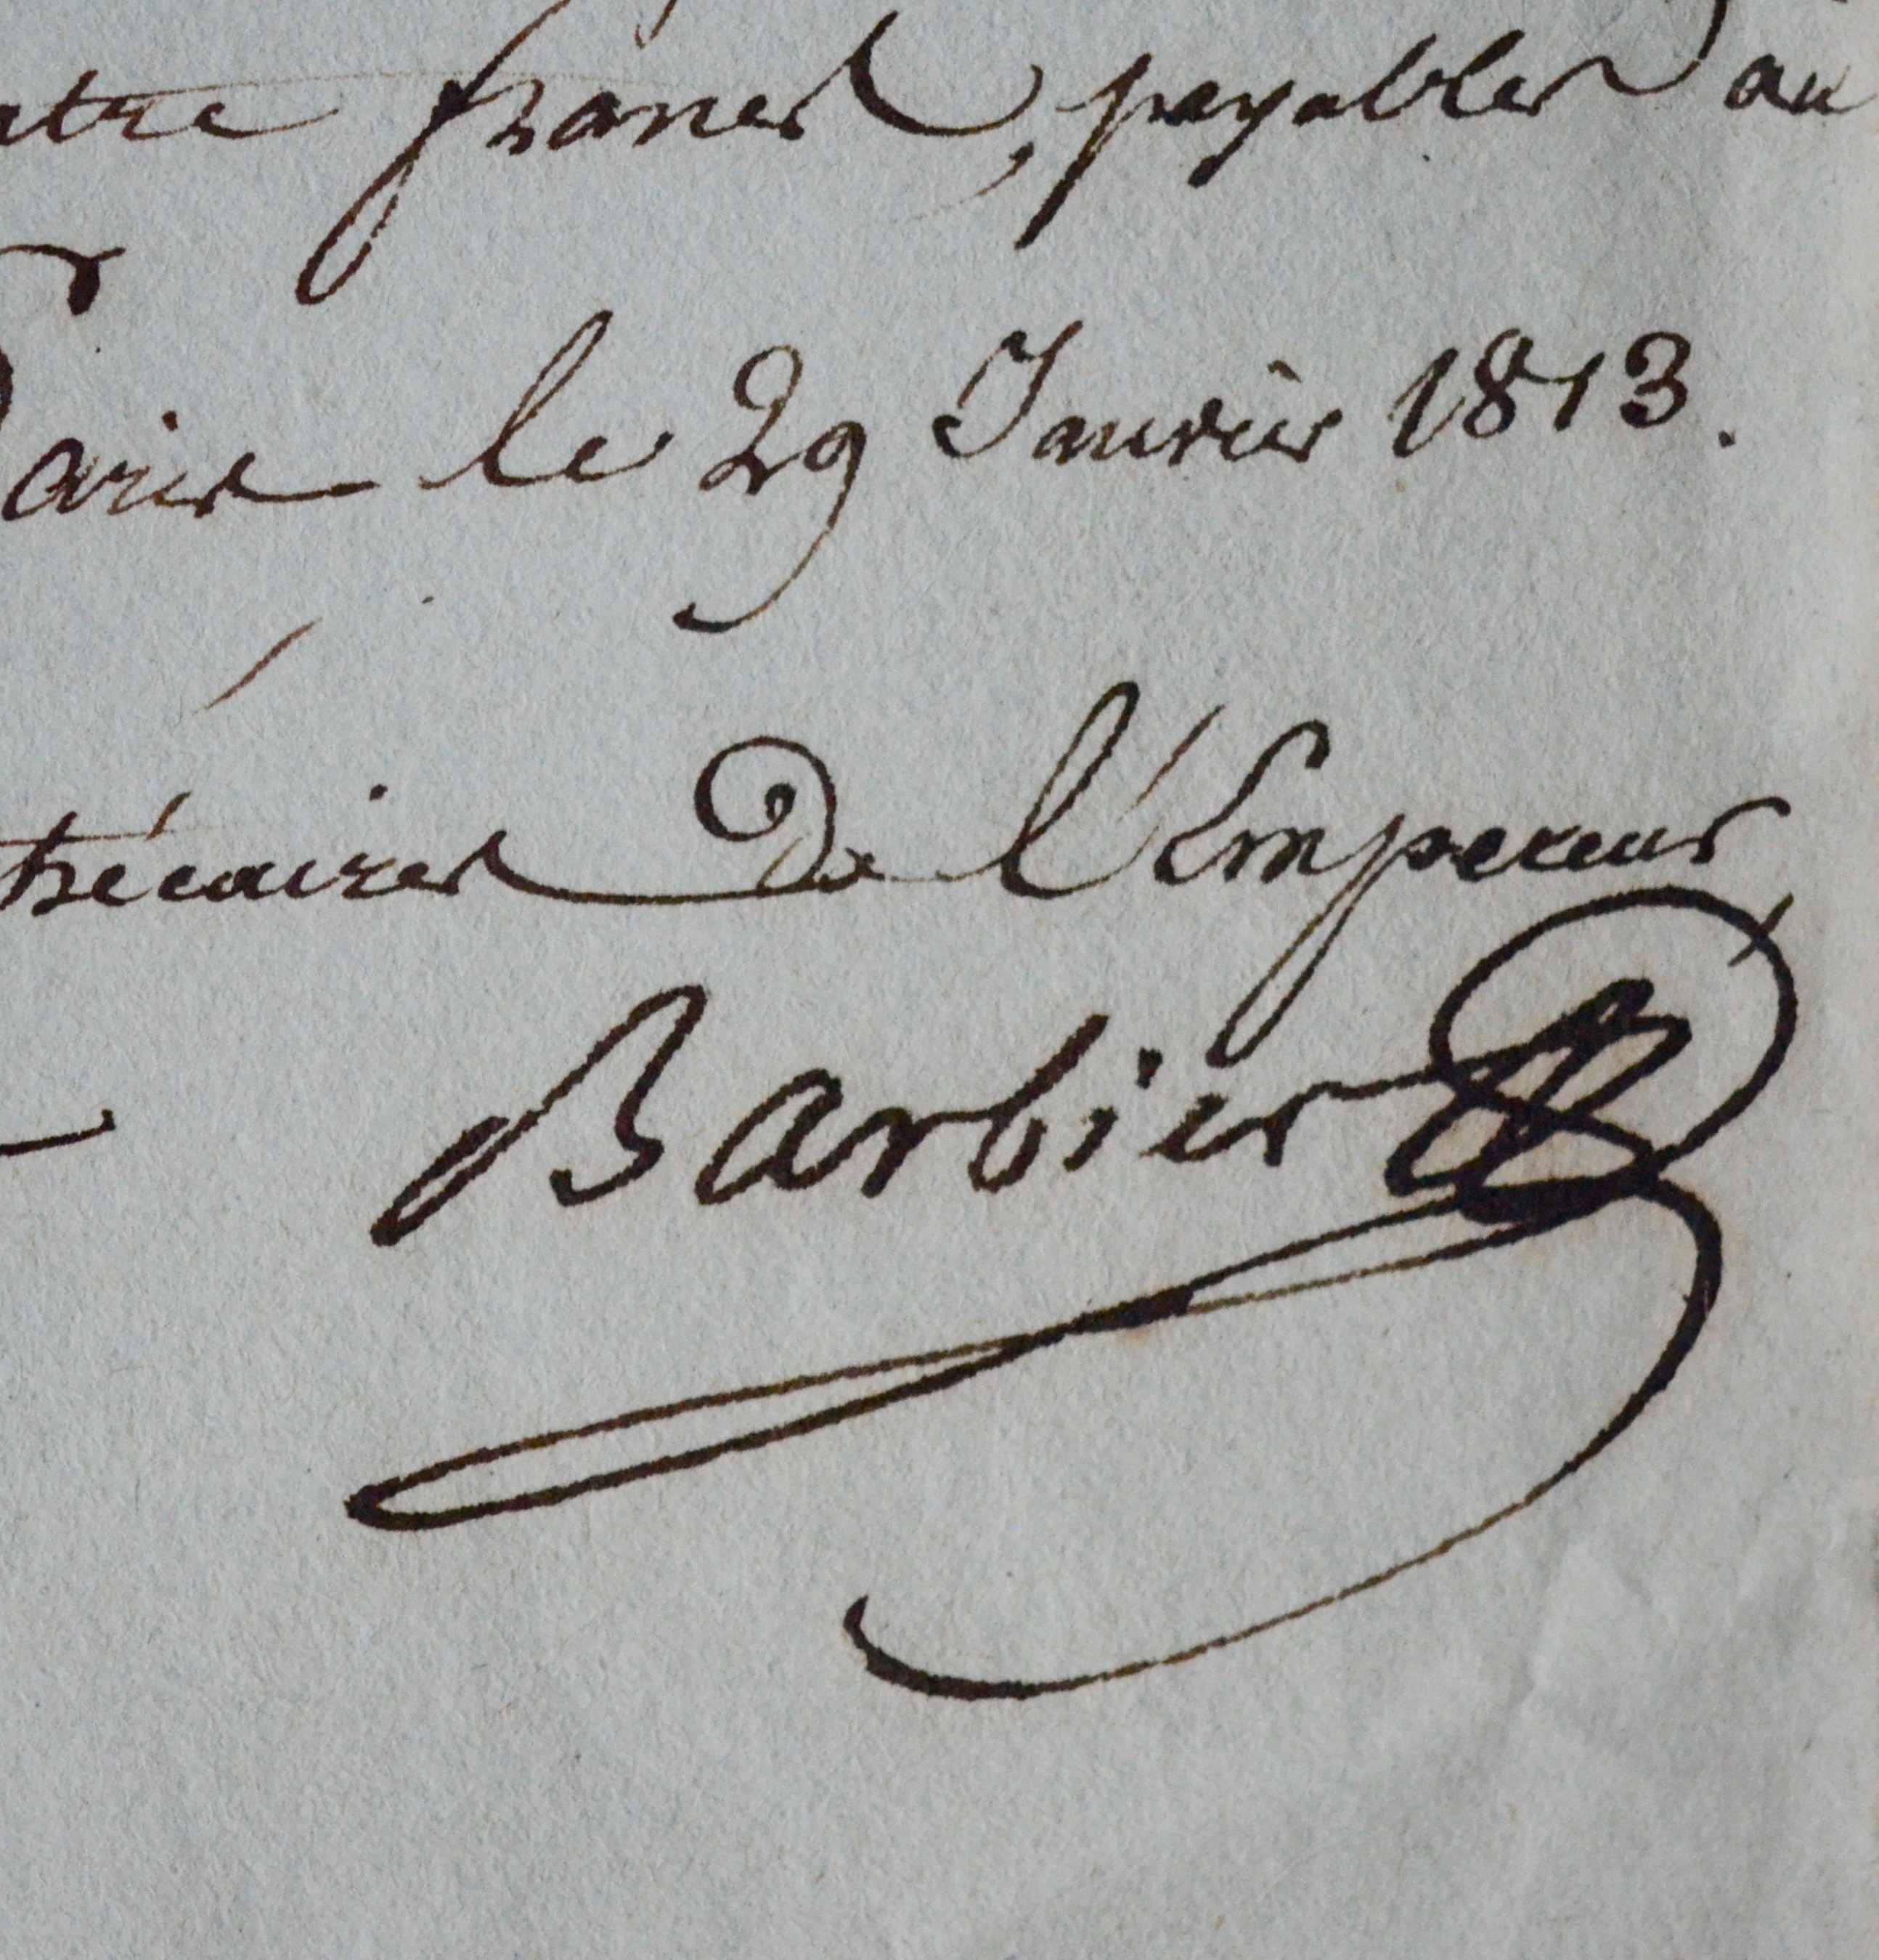 atre francs, payables au
aris le 29 Janvier 1813.
thécaires de l'Empereur
Barbier